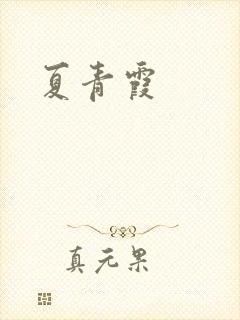 夏青霞
真元果